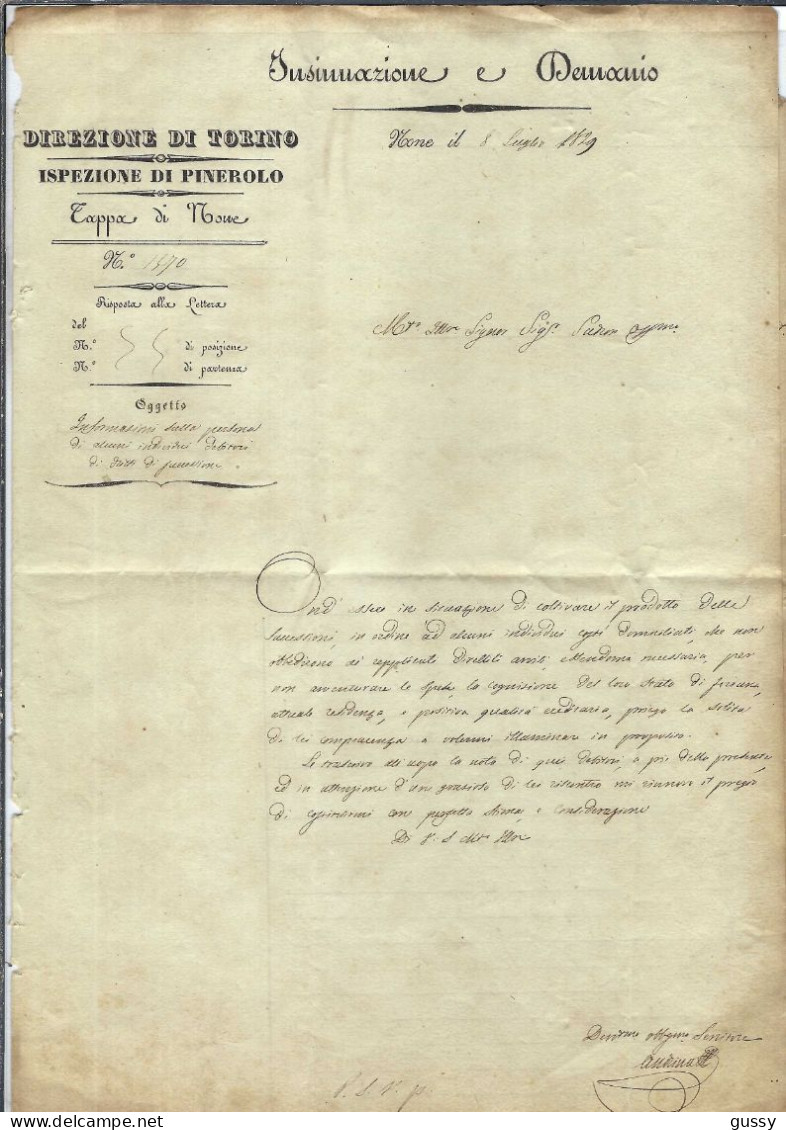 Insinuazione e Demanio
DIREZIONE DI TORINO
ISPEZIONE DI PINEROLO
Tappa di None
N.° 1370
Risposta alla Lettera
del
N.° di posizione
N.° di partenza
Oggetto
Informazioni sulla persona
di alcuni individui debitori
di dritti di successione.
None il 8 Luglio 1829
Mto Illre Signor Sigr Padron
Ond' essere in situazione di coltivare il prodotto delle
Successioni, in ordine ad alcuni individui costì domiciliati, che non
obbedirono ai replicati diretti avvisi, necessaria, per
non avventurare le spese, la cognizione del loro stato di fortuna,
attuale residenza, e positiva qualità ereditaria, prego la solita
di lei compiacenza a volermi illuminare in proposito.
Le trasmetto all'uopo la nota di quei debitori, a piè della presente,
ed in attenzione d'un grazioso di lei riscontro mi rinnovo il pregio
di confirmarmi con perfetta stima, e considerazione
Di V. S. Mto Illre
Devotmo obbligmo Servitore
P. S. V. p.
gussy